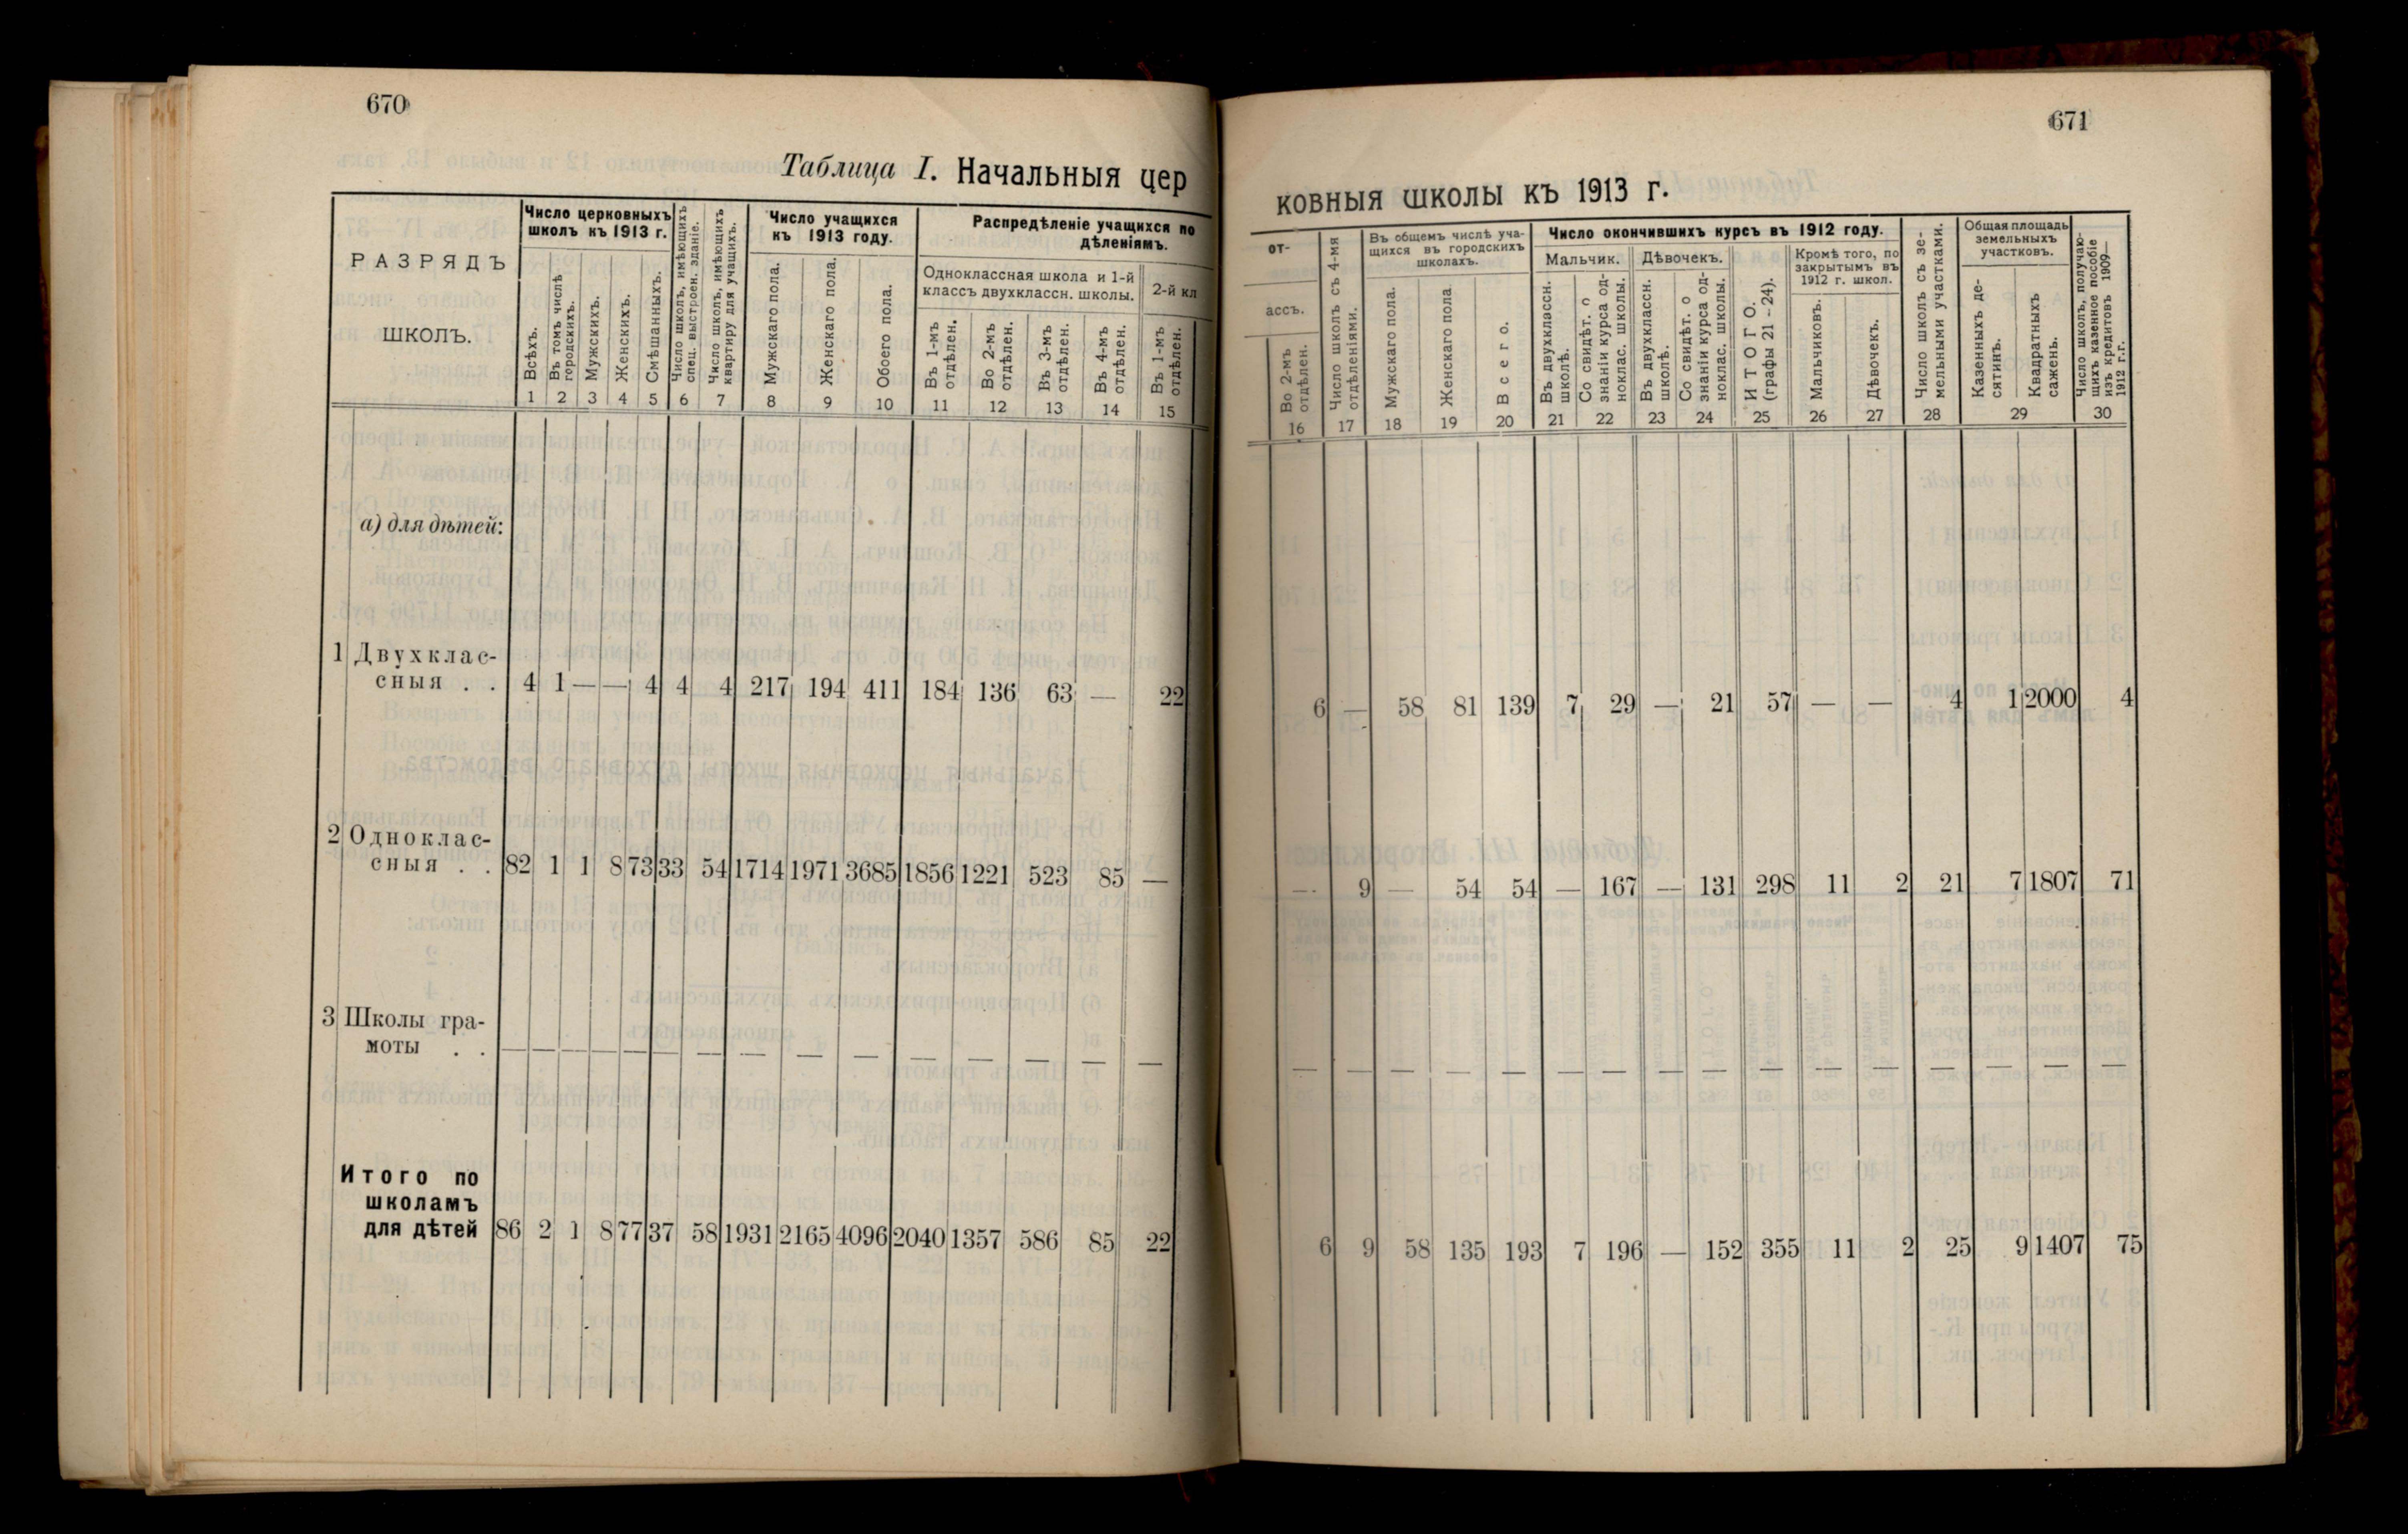 670
Таблица I. Начальныя цер
РАЗРЯДЪ
ШКОЛЪ.
Число церковныхъ
школъ къ 1913 г.
Всѣхъ.
Въ томъ числѣ
городскихъ.
Мужскихъ.
Женскихъ.
Смѣшанныхъ.
Число школъ, имѣющихъ
спец. выстроен. зданіе.
Число школъ, имѣющихъ
квартиру для учащихъ.
Число учащихся
къ 1913 году.
Мужскаго пола.
Женскаго пола.
Обоего пола.
Распредѣленіе учащихся по
дѣленіямъ.
Одноклассная школа и 1-й
классъ двухклассн. школы.
2-й кл
Въ 1-мъ
отдѣлен.
Во 2-мъ
отдѣлен.
Въ 3-мъ
отдѣлен.
Въ 4-мъ
отдѣлен.
Въ 1-мъ
отдѣлен.
1 2 3 4 5 6 7 8 9 10 11 12 13 14 15
а) для дѣтей:
1 Двухклас-
сныя . . 4 1 — — 4 4 4 217 194 411 184 136 63 — 22
2 Одноклас-
сныя . . 82 1 1 8 73 33 54 1714 1971 3685 1856 1221 523 85 —
3 Школы гра-
моты . . — — — — — — — — — — — — — — —
Итого по
школамъ
для дѣтей 86 2 1 8 77 37 58 1931 2165 4096 2040 1357 586 85 22
671
ковныя школы къ 1913 г.
от-
ассъ.
Во 2-мъ
отдѣлен.
Число школъ съ 4-мя
отдѣленіями.
Въ общемъ числѣ уча-
щихся въ городскихъ
школахъ.
Мужскаго пола.
Женскаго пола
Всего.
Число окончившихъ курсъ въ 1912 году.
Мальчик.
Дѣвочекъ.
Въ двухклассн.
школѣ.
Со свидѣт. о
знаніи курса од-
ноклас. школы.
Въ двухклассн.
школѣ.
Со свидѣт. о
знаніи курса од-
ноклас. школы.
ИТОГО.
(графы 21-24).
Кромѣ того, по
закрытымъ въ
1912 г. школ.
Мальчиковъ.
Дѣвочекъ.
Число школъ съ зе-
мельными участками.
Общая площадь
земельныхъ
участковъ.
Казенныхъ де-
сятинъ.
Квадратныхъ
сажень.
Число школъ, получаю-
щихъ казенное пособіе
изъ кредитовъ 1909—
1912 г.г.
16 17 18 19 20 21 22 23 24 25 26 27 28 29 30
6 — 58 81 139 7 29 — 21 57 — — 4 1 2000 4
— 9 — 54 54 — 167 — 131 298 11 2 21 7 1807 71
— — — — — — — — — — — — — — — —
6 9 58 135 193 7 196 — 152 355 11 2 25 9 1407 75